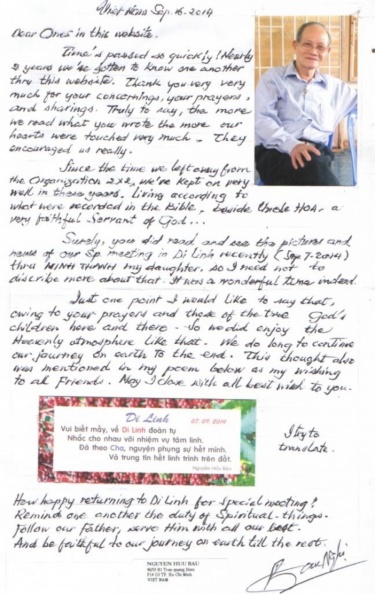 Việt Nam Sep. 16-2014
Dear Ones in this website.
Time's passed so quickly! Nearly
2 years we've gotten to know one another
thru this website. Thank you very very
much for your concernings, your prayers,
and sharings. Truly to say, the more
we read what you wrote the more our
hearts were touched very much. They
encouraged us really.
Since the time we left away from
the Organization 2x2, we've kept on very
well in these years. Living according to
what were recorded in the Bible, beside Uncle HOA, a
very faithful Servant of God...
Surely, you did read and see the pictures and
news of our Sp meeting in Di Linh recently (Sep 7-2014)
thru my daughter, so I need not to
describe more about that. It was a wonderful time indeed.
Just one point I would like to say that,
owing to your prayers and those of the true God's
children here and there - So we did enjoy the
Heavenly atmosphere like that. We do long to continue
our journey on earth to the end. This thought also
was mentioned in my poem below as my wishing
to all Friends. Now I close with all best wish to you.
Di Linh 07.09.2014
Vui biết mấy, về Di Linh đoàn tụ
Nhắc cho nhau với nhiệm vụ tâm linh.
Đã theo Cha, nguyện phụng sự hết mình.
Và trung tín hết linh trình trên đất.
Nguyễn Hữu Bàu
I try to
translate.
How happy returning to Di Linh for special meeting!
Remind one another the duty of Spiritual things.
Follow our Father, serve Him with all our best.
And be faithful to our journey on earth till the rest.
NGUYEN HUU BAU
VIET NAM